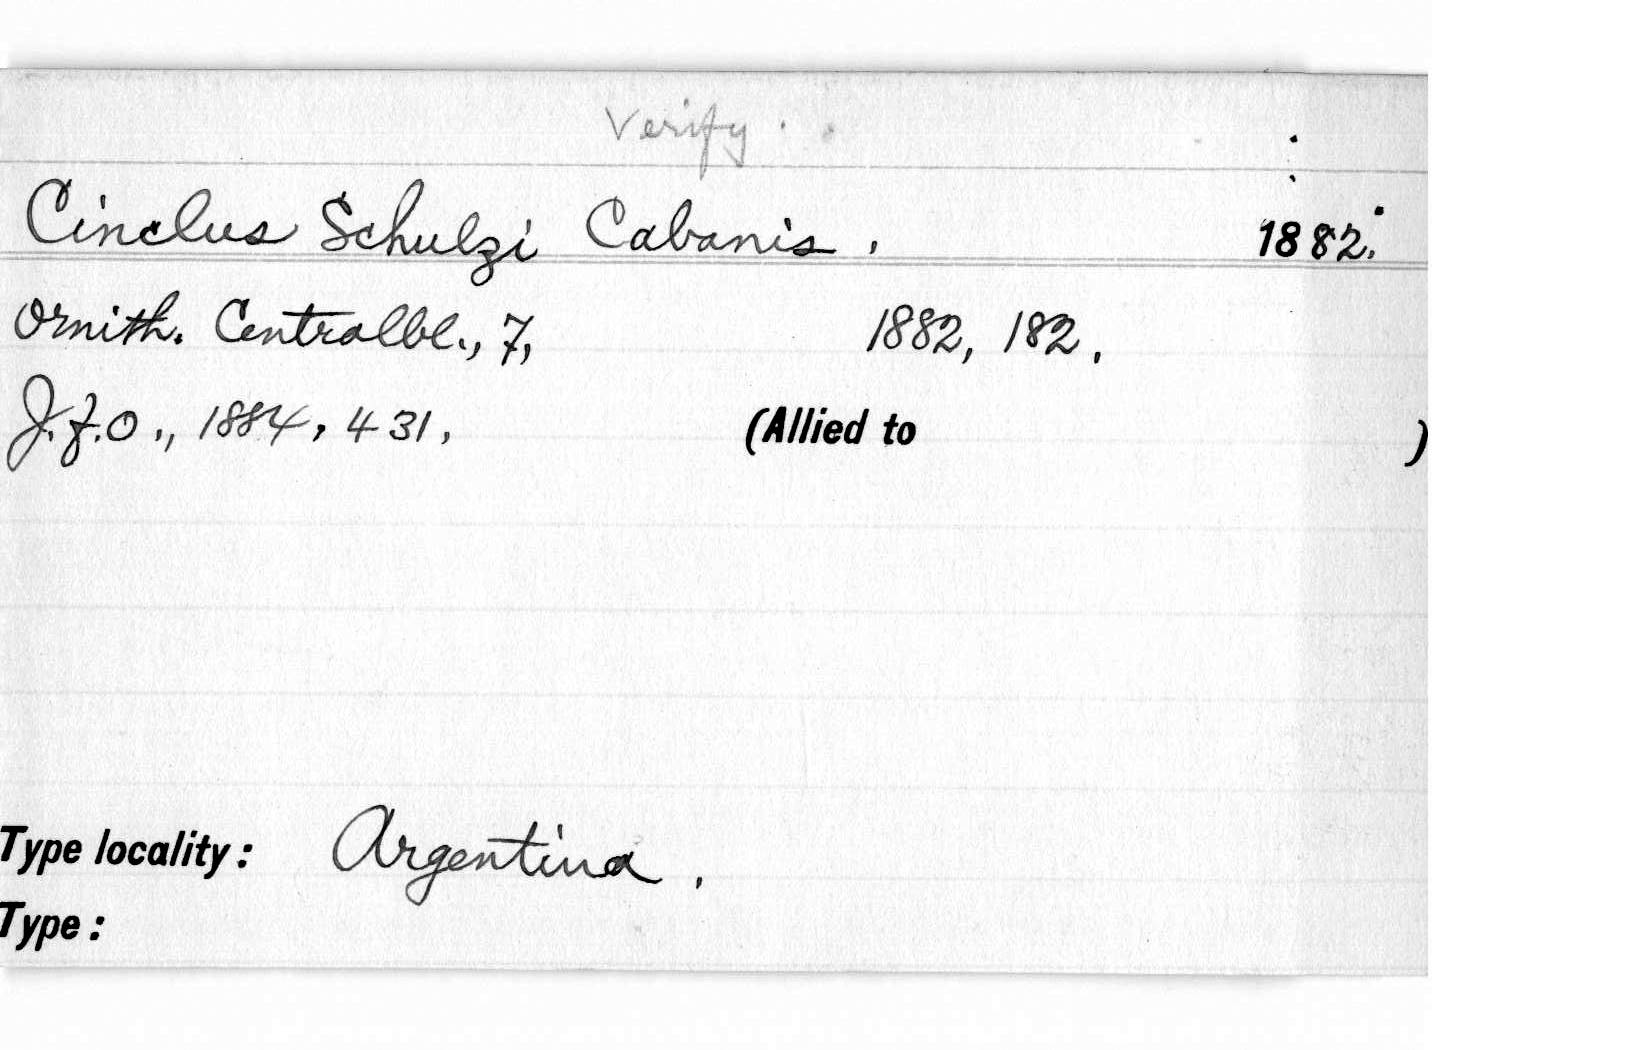 Verify.
Cinclus Schulzi Cabanis. 1882.
Ornith. Centralbl., 7, 1882, 182.
J.f.O., 1884, 431. (Allied to )
Type locality: Argentina.
Type: